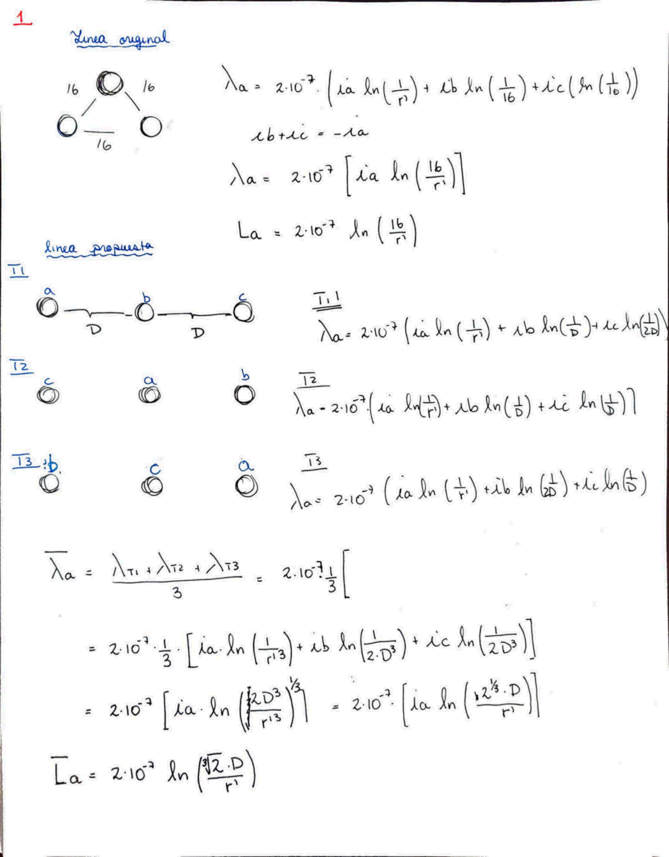 1
Linea original
16 16
16
λa = 2·10⁻⁷·(ia ln(1/r') + ib ln(1/16) + ic(ln(1/16))
ib+ic = -ia
λa = 2·10⁻⁷ [ia ln(16/r')]
La = 2·10⁻⁷ ln(16/r')
linea propuesta
T1
a b c
D D
T1
λa = 2·10⁻⁷(ia ln(1/r') + ib ln(1/D) + ic ln(1/2D))
T2
c a b
T2
λa = 2·10⁻⁷·(ia ln(1/r') + ib ln(1/D) + ic ln(1/D))
T3: b. c a
T3
λa = 2·10⁻⁷ (ia ln(1/r') + ib ln(1/2D) + ic ln(1/D))
λ̅a = (λT1 + λT2 + λT3)/3 = 2·10⁻⁷·1/3 [
= 2·10⁻⁷·1/3·[ia·ln(1/r'³) + ib ln(1/2·D³) + ic ln(1/2D³)]
= 2·10⁻⁷ [ia·ln(2D³/r'³)^1/3] = 2·10⁻⁷·[ia ln(2^1/3·D/r')]
L̅a = 2·10⁻⁷ ln(∛2·D/r')